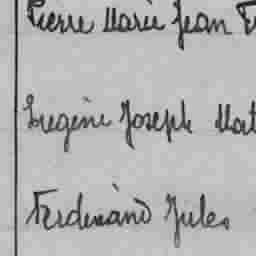 Pierre Marie Jean
Eugène Joseph
Ferdinand Jules